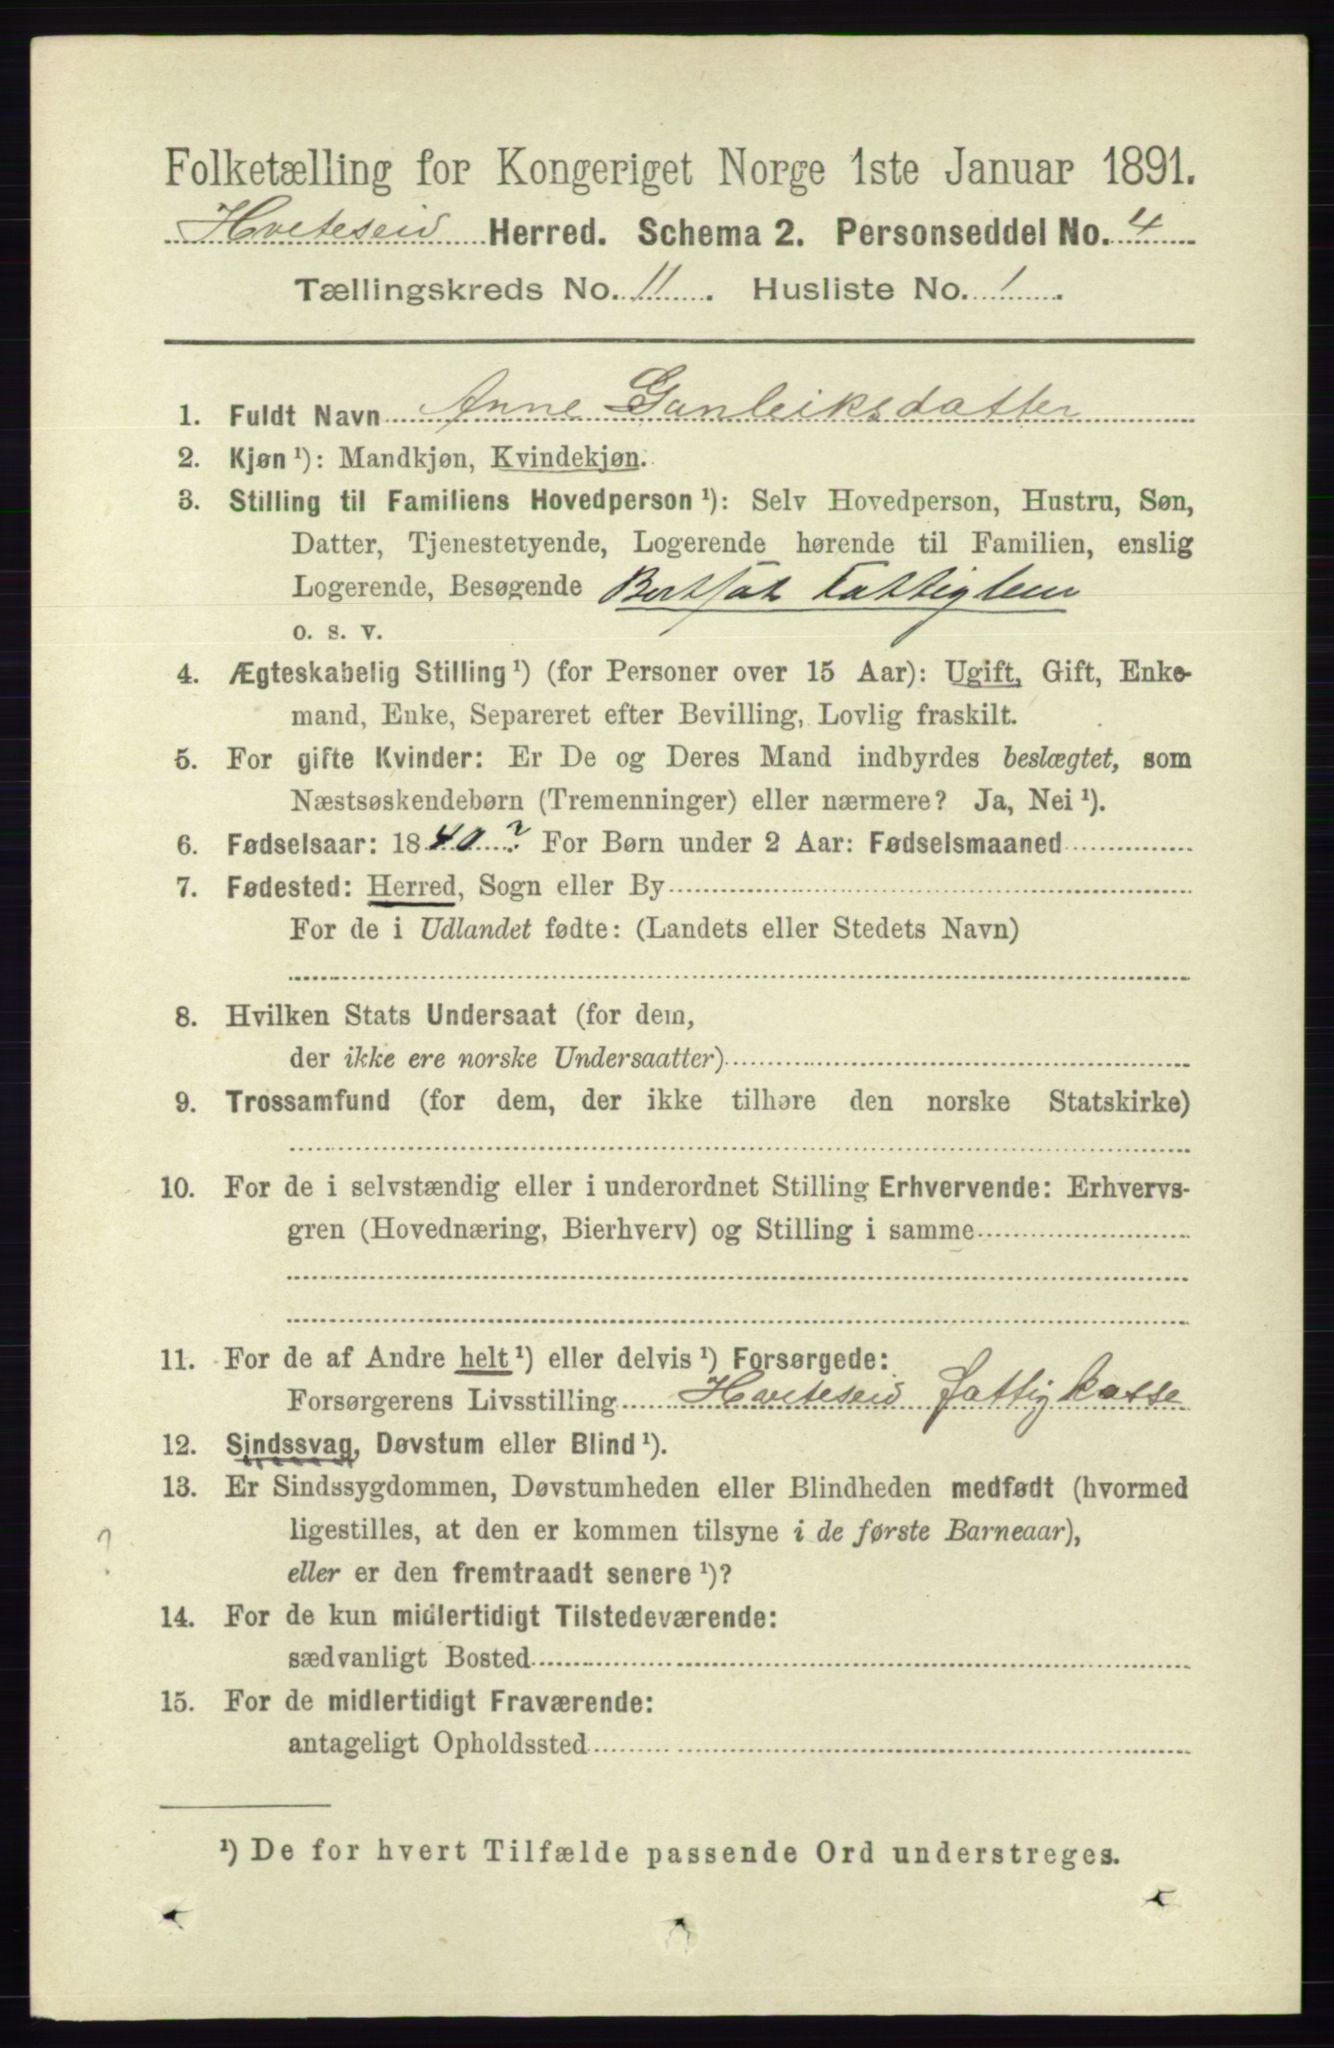 Folketælling for Kongeriget Norge 1ste Januar 1891.
Hviteseid Herred. Schema 2. Personseddel No. 4
Tællingskreds No. 11. Husliste No. 1.
1. Fuldt Navn Anne Gunleiksdatter
2. Kjøn ¹): Mandkjøn, Kvindekjøn.
3. Stilling til Familiens Hovedperson ¹): Selv Hovedperson, Hustru, Søn,
Datter, Tjenestetyende, Logerende hørende til Familien, enslig
Logerende, Besøgende Bortsat Fattiglem
o. s. v.
4. Ægteskabelig Stilling ¹) (for Personer over 15 Aar): Ugift, Gift, Enke-
mand, Enke, Separeret efter Bevilling, Lovlig fraskilt.
5. For gifte Kvinder: Er De og Deres Mand indbyrdes beslægtet, som
Næstsøskendebørn (Tremenninger) eller nærmere? Ja, Nei ¹).
6. Fødselsaar: 1840? For Børn under 2 Aar: Fødselsmaaned
7. Fødested: Herred, Sogn eller By
For de i Udlandet fødte: (Landets eller Stedets Navn)
8. Hvilken Stats Undersaat (for dem,
der ikke ere norske Undersaatter)
9. Trossamfund (for dem, der ikke tilhøre den norske Statskirke)
10. For de i selvstændig eller i underordnet Stilling Erhvervende: Erhvervs-
gren (Hovednæring, Bierhverv) og Stilling i samme
11. For de af Andre helt ¹) eller delvis ¹) Forsørgede:
Forsørgerens Livsstilling Hviteseid Fattigkasse
12. Sindssvag, Døvstum eller Blind ¹).
13. Er Sindssygdommen, Døvstumheden eller Blindheden medfødt (hvormed
ligestilles, at den er kommen tilsyne i de første Barneaar),
?
eller er den fremtraadt senere ¹)?
14. For de kun midlertidigt Tilstedeværende:
sædvanligt Bosted
15. For de midlertidigt Fraværende:
antageligt Opholdssted
¹) De for hvert Tilfælde passende Ord understreges.